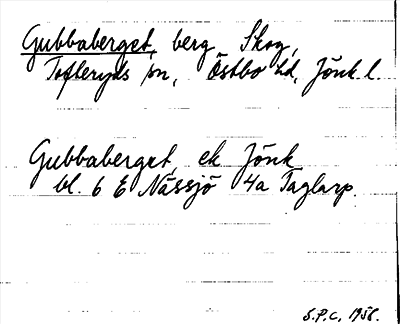 Gubbaberget, berg, Skog,
Tofteryds sn, Östbo hd, Jönk. l.
Gubbaberget ek Jönk
bl. 6 E Nässjö 4a Taglarp.
S.P.C. 1956.